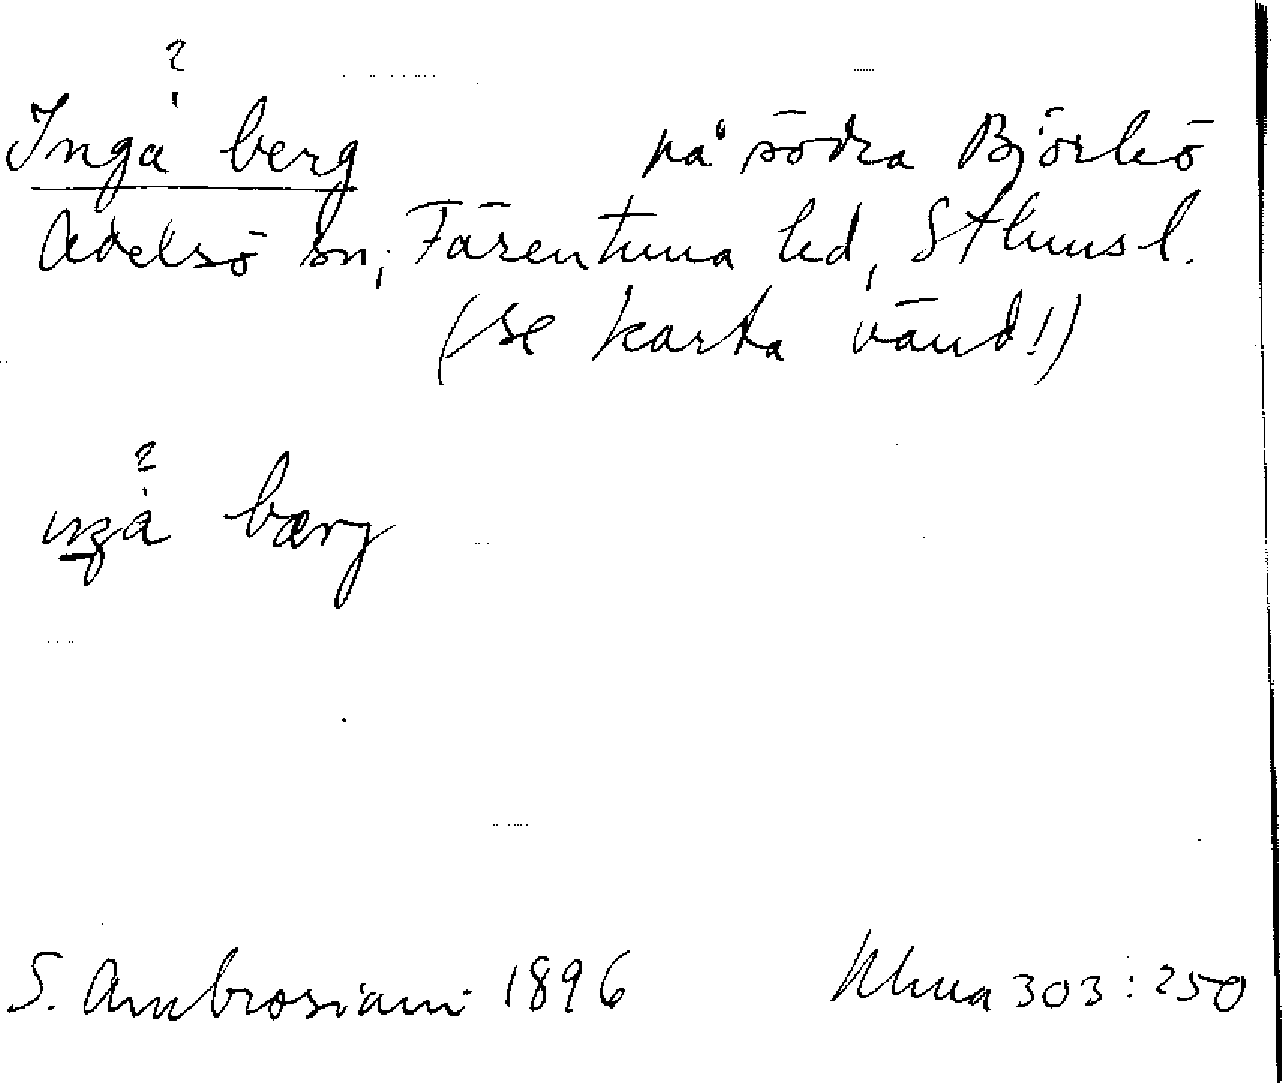 ?
Ingå berg på södra Björkö
Adelsö sn, Färentuna hd, Sthms l.
(se karta vänd!)
?
bærg
S. Ambrosiani 1896 303:250